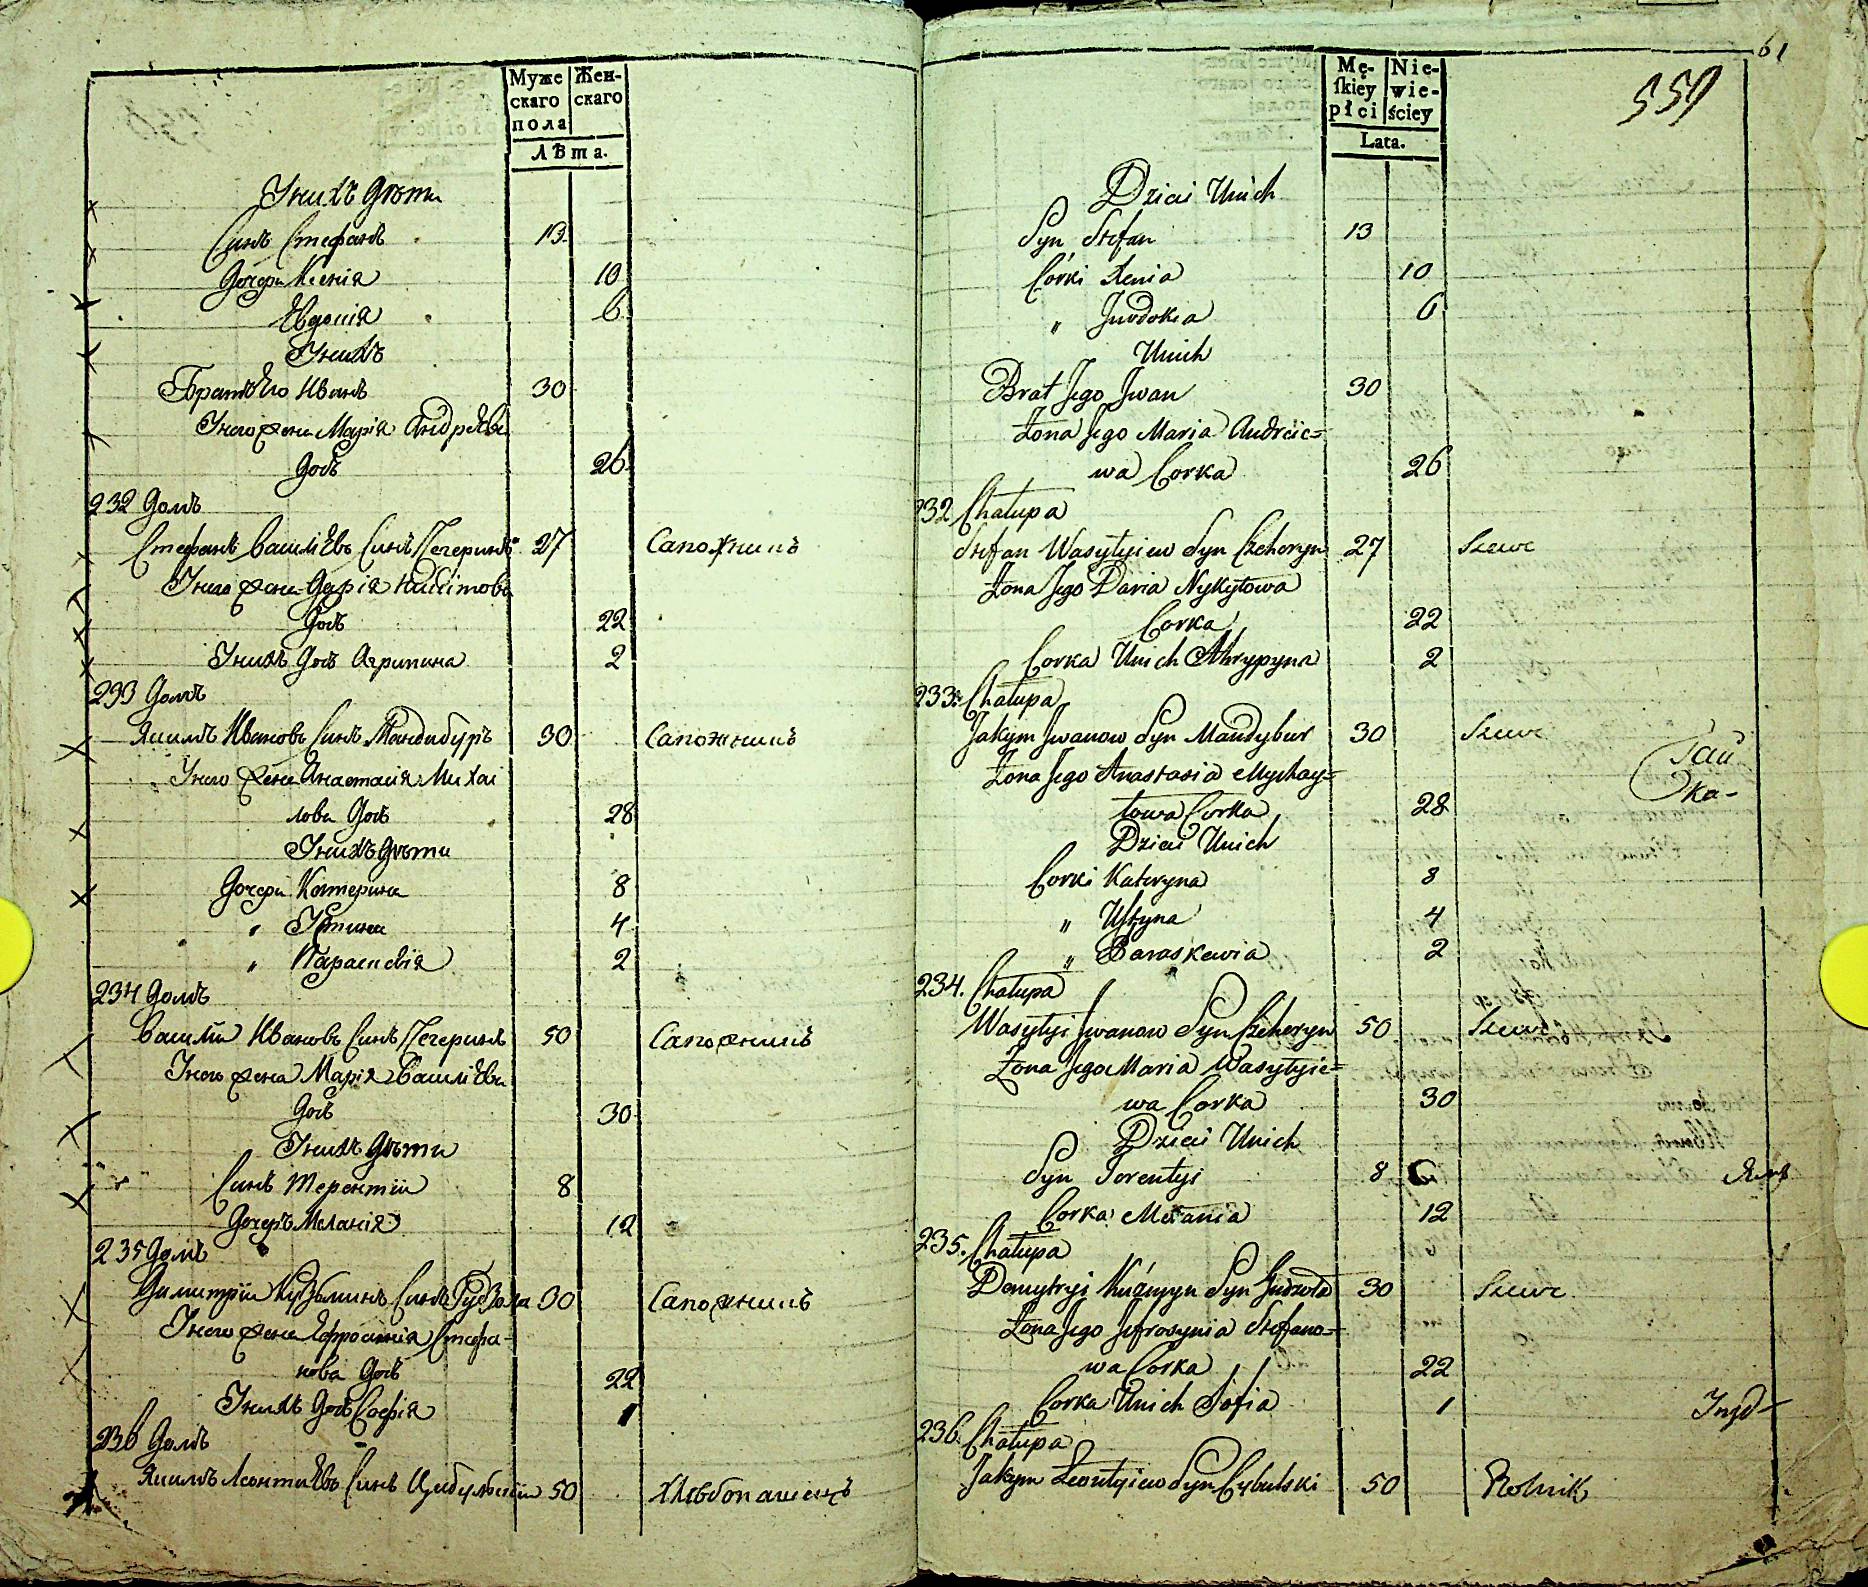 Муже
скаго
пола
Жен-
скаго
Лѣта.
У нихъ дѣти
Синъ Стефанъ 13
Дочери Ксенія 10
Евдокія 6
У нихъ
Братъ Его Иванъ 30
У него жена Марія Андрѣева
Дочь 26
232 Домъ
Стефанъ Васильевъ Синъ Чечеринъ 27 Сапожникъ
У него жена Дарія Никитова
Дочь 22
У нихъ Дочь Агрипина 2
233 Домъ
Якимъ Ивановъ Синъ Мандибуръ 30 Сапожникъ
У него жена Анастасія Михаі
лова Дочь 28
У нихъ дѣти
Дочери Катерина 8
„ Устина 4
„ Параскевія 2
234 Домъ
Василій Ивановъ Синъ Чечеринъ 50 Сапожникъ
У него жена Марія Васильева
Дочь 30
У нихъ дѣти
Синъ Терентій 8
Дочерь Меланія 12
235 Домъ
Димитрій Кузьминъ Синъ Гудзола 30 Сапожникъ
У него жена Ефросинія Стефа-
нова Дочь 22
У нихъ Дочь Софія 1
236 Домъ
Якимъ Леонтиевъ Синъ Цибульскій 50 хлѣбопашецъ
61
559
Mę-
ſkiey
płci
Nie-
wie-
ściey
Lata.
Dzieci Unich
Syn Stefan 13
Córki Xenia 10
„ Jwdokia 6
Unich
Brat Jego Jwan 30
Żona Jego Maria Andreie=
wa Corka 26
232 Chałupa
Stefan Wasylyiew Syn Czeheryn 27 Szewc
Żona Jego Daria Nykytowa
Corka 22
Corka Unich Ahrypyna 2
233. Chałupa
Jakym Jwanow Syn Mandybur 30 Szewc
Żona Jego Anastasia Mychay=
łowa Corka 28
Dzieci Unich
Corki Kateryna 8
„ Uſtyna 4
„ Paraskewia 2
234. Chałupa
Wasylyi Jwanow Syn Czeheryn 50 Szewc
Żona Jego Maria Wasylyie=
wa Corka 30
Dzieci Unich
Syn Terentyi 8
Corka Melania 12
235. Chałupa
Demytryi Kuźmyn Syn Gudzoła 30 Szewc
Żona Jego Jefrosynia Stefano=
wa Corka 22
Corka Unich Sofia 1
236. Chałupa
Jakym Leontyiew Syn Cybulski 50 Rolnik